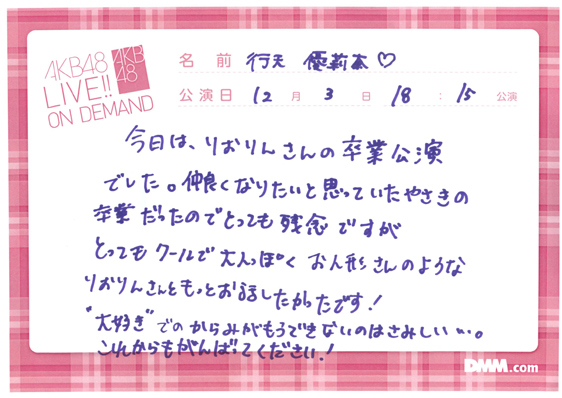 AKB48
LIVE!!
ON DEMAND
AKB
48
名前 行天 優莉奈♡
公演日 12月3日 18:15公演
今日は、りおりんさんの卒業公演
でした。仲良くなりたいと思っていたやさきの
卒業だったのでとっても残念ですが
とってもクールで大人っぽくお人形さんのような
りおりんさんともっとお話したかったです!
"大好き"でのからみがもうできないのはさみしい…。
これからもがんばってください!
DMM.com